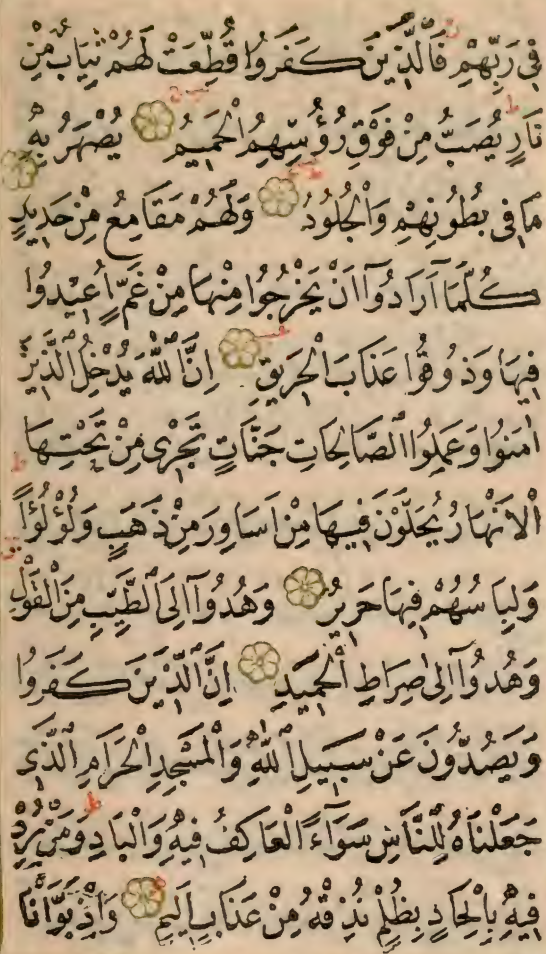 فِي رَبِّهِمْ فَالَّذِينَ كَفَرُوا قُطِّعَتْ لَهُمْ ثِيَابٌ مِنْ
نَارٍ يُصَبُّ مِنْ فَوْقِ رُؤُسِهِمُ الْحَمِيمُ يُصْهَرُ بِهِ
مَا فِي بُطُونِهِمْ وَالْجُلُودُ وَلَهُمْ مَقَامِعُ مِنْ حَدِيدٍ
كُلَّمَا أَرَادُوا أَنْ يَخْرُجُوا مِنْهَا مِنْ غَمٍّ أُعِيدُوا
فِيهَا وَذُوقُوا عَذَابَ الْحَرِيقِ إِنَّ اللَّهَ يُدْخِلُ الَّذِينَ
اٰمَنُوا وَعَمِلُوا الصَّالِحَاتِ جَنَّاتٍ تَجْرِي مِنْ تَحْتِهَا
الْأَنْهَارُ يُحَلَّوْنَ فِيهَا مِنْ أَسَاوِرَ مِنْ ذَهَبٍ وَلُؤْلُؤًا
وَلِبَاسُهُمْ فِيهَا حَرِيرٌ وَهُدُوا إِلَى الطَّيِّبِ مِنَ الْقَوْلِ
وَهُدُوا إِلَى صِرَاطِ الْحَمِيدِ إِنَّ الَّذِينَ كَفَرُوا
وَيَصُدُّونَ عَنْ سَبِيلِ اللَّهِ وَالْمَسْجِدِ الْحَرَامِ الَّذِي
جَعَلْنَاهُ لِلنَّاسِ سَوَاءً الْعَاكِفُ فِيهِ وَالْبَادِ وَمَنْ يُرِدْ
فِيهِ بِإِلْحَادٍ بِظُلْمٍ نُذِقْهُ مِنْ عَذَابٍ أَلِيمٍ وَإِذْ بَوَّأْنَا